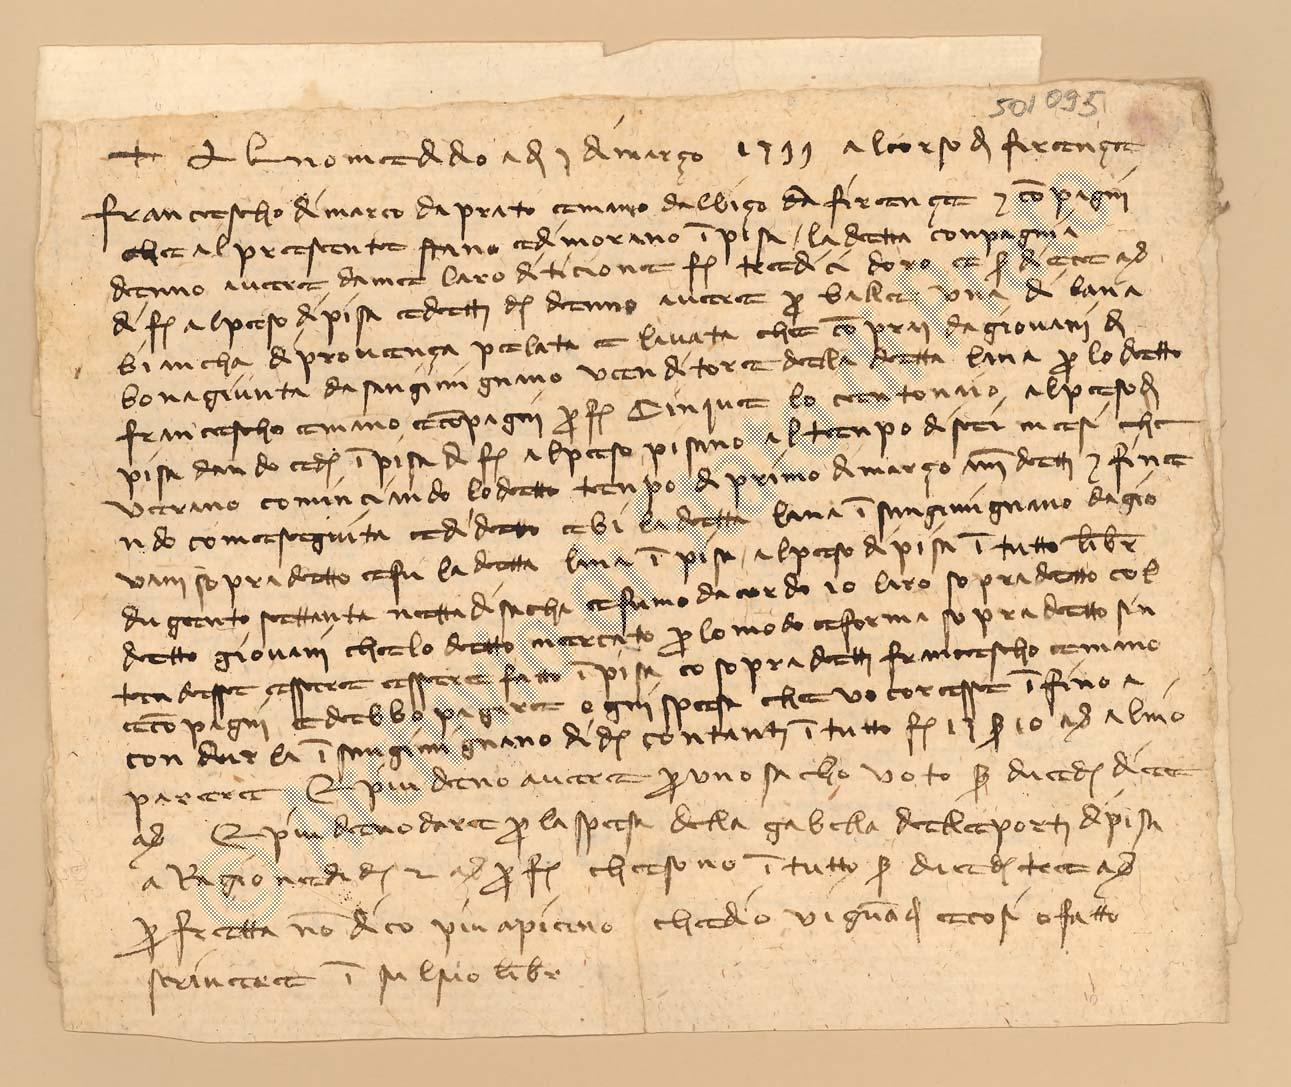 501095
+ Al nome di dio a dì 7 di março 1399 al corso di firençe
francescho di marco da prato e mano dalbiço da firençe e conpagni
che al presente stano e dimorano in pisa la detta conpagnia
deono avere da me laro di ticione f. tredici doro e s. diece a
di f. al peso di pisa e detti d. deono avere per balle una di lana
biancha di provença pelata e lavata che conprai da giovani di
bonagiunta da sangimignano venditore della detta lana per lo detto
francescho e mano e conpagni per f. Cinque lo centonaio al peso di
pisa dando e d. in pisa di f. al peso pisano al tenpo di sei mesi che
verano cominciando lo detto tenpo di primo di março anni detti e fine
ndo come seguita e di detto ebi la detta lana in sangimignano da gio
vani sopradetto e fu la detta lana in pisa al peso di pisa in tutto libr
dugento settanta netta di sacha e fumo dacordo io laro sopradetto col
detto giovani che lo detto mercato per lo modo e forma sopradetto sin
tendesse essere essere fatto in pisa co sopradetti francescho e mano
e conpagni e debbo pagare ogni spesa che vo coresse in fino a
condurla in sangimignano di d. contanti in tutto f. 13 s. 10 a al mio
parere E piu deno avere per uno sacho voto s. due d. diece
a E piu deno dare per la spesa della gabella delle porti di pisa
a Ragione di d. 2 a per f. che sono in tutto s. due d. tre a
per fretta non dico piu apieno che dio vi guardi e cosi o fatto
scrivere in sul suo libr